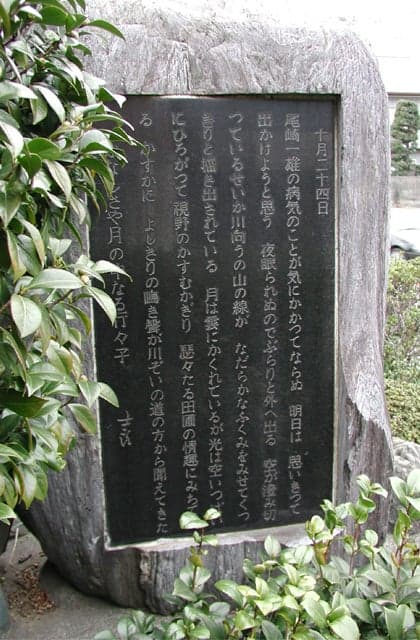 十月二十四日
尾崎一雄の病気のことが気にかかつてならぬ 明日は 思いきつて
出かけようと思う 夜眠られぬのでぶらりと外へ出る 空が澄み切
つているせいか川向うの山の線が なだらかなふくみをみせてくつ
きりと描き出されている 月は雲にかくれているが光は空いつ
にひろがつて視野のかすむかぎり 瑟々たる田圃の情趣にみち
る かすかに よしきりの鳴き聲が川ぞいの道の方から聞えてきた
しさや月の なる行々子 士郎